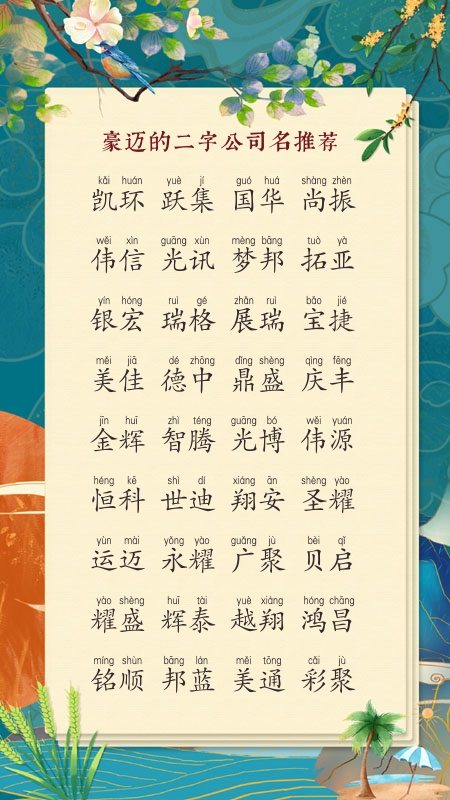 豪迈的二字公司名推荐
kǎi huán yuè jí guó huá shàng zhèn
凯环 跃集 国华 尚振
wěi xìn guāng xùn mèng bāng tuò yà
伟信 光讯 梦邦 拓亚
yín hóng ruì gé zhǎn ruì bǎo jié
银宏 瑞格 展瑞 宝捷
měi jiā dé zhōng dǐng shèng qìng fēng
美佳 德中 鼎盛 庆丰
jīn huī zhì téng guāng bó wěi yuán
金辉 智腾 光博 伟源
héng kē shì dí xiáng ān shèng yào
恒科 世迪 翔安 圣耀
yùn mài yǒng yào guǎng jù bèi qǐ
运迈 永耀 广聚 贝启
yào shèng huī tài yuè xiáng hóng chāng
耀盛 辉泰 越翔 鸿昌
míng shùn bāng lán měi tōng cǎi jù
铭顺 邦蓝 美通 彩聚